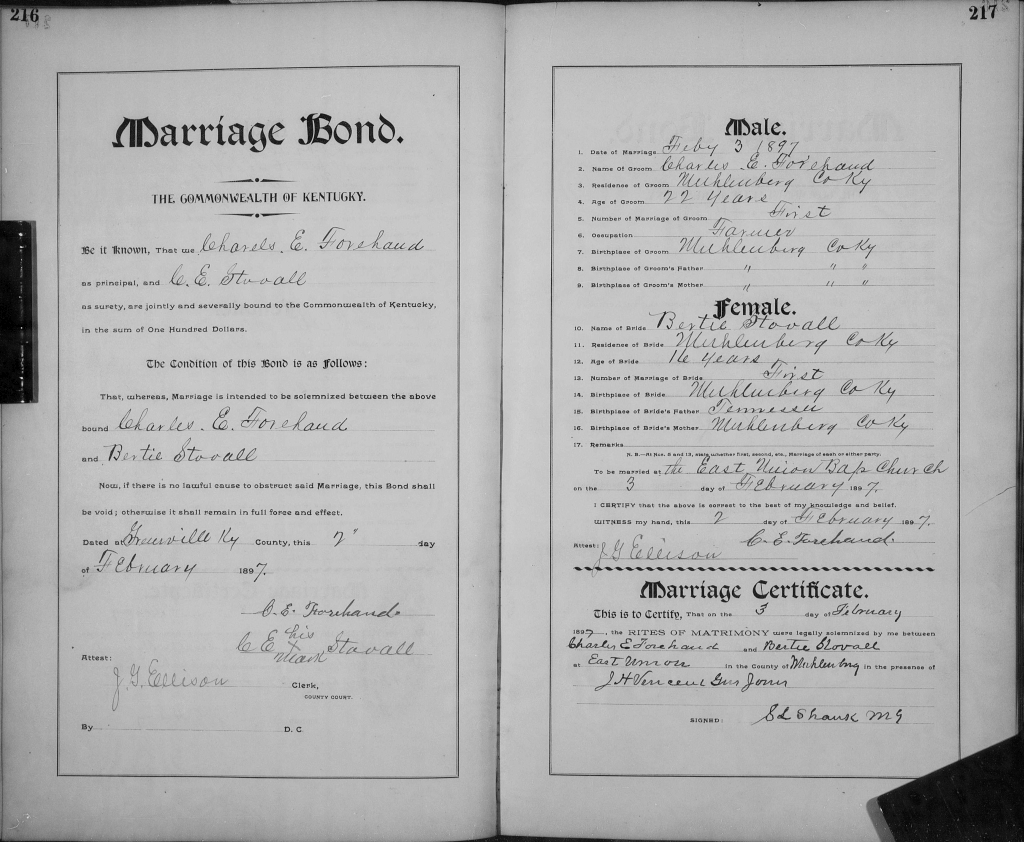 216
Marriage Bond.
THE COMMONWEALTH OF KENTUCKY.
Be it Known, That we Charels. E. Forehand
as principal, and C. E. Stovall
as surety, are jointly and severally bound to the Commonwealth of Kentucky,
in the sum of One Hundred Dollars.
The Condition of this Bond is as Follows:
That, whereas, Marriage is intended to be solemnized between the above
bound Charles. E. Forehand
and Bertie Stovall
Now, if there is no lawful cause to obstruct said Marriage, this Bond shall
be void; otherwise it shall remain in full force and effect.
Dated at Greenville Ky County, this 2" day
of February 1897.
C. E. Forehand
C E his X mark Stovall
Attest:
J. G. Ellison Clerk,
COUNTY COURT.
By D. C.
217
Male.
1. Date of Marriage Feby 3 1897
2. Name Of Groom Charles E. Forehand
3. Residence of Groom Muhlenberg Co Ky
4. Age of Groom 22 Years
5. Number of Marriage of Groom First
6. Occupation Farmer
7. Birthplace of Groom Muhlenberg Co Ky
8. Birthplace of Groom's Father " " "
9. Birthplace of Groom's Mother " " "
Female.
10. Name of Bride Bertie Stovall
11. Residence of Bride Muhlenberg Co Ky
12. Age of Bride 16 Years
13. Number of Marriage of Bride First
14. Birthplace of Bride Muhlenberg Co Ky
15. Birthplace of Bride's Father Tennessee
16. Birthplace of Bride's Mother Muhlenberg Co Ky
17. Remarks
N. B.—At Nos. 5 and 13, state whether first, second, etc., Marriage of each or either party.
To be married at the East Union Bap Church
on the 3 day of February 1897.
I CERTIFY that the above is correct to the best of my knowledge and belief.
WITNESS my hand, this 2 day of February 1897.
Attest: C. E. Forehand.
J G Ellison
Marriage Certificate.
This is to Certify, That on the 3 day of February
1897, the RITES OF MATRIMONY were legally solemnized by me between
Charles E Forehand and Bertie Stovall
at East Union in the County of Muhlenberg in the presence of
J H Vincent Gus Jones
SIGNED: S L Shank MG